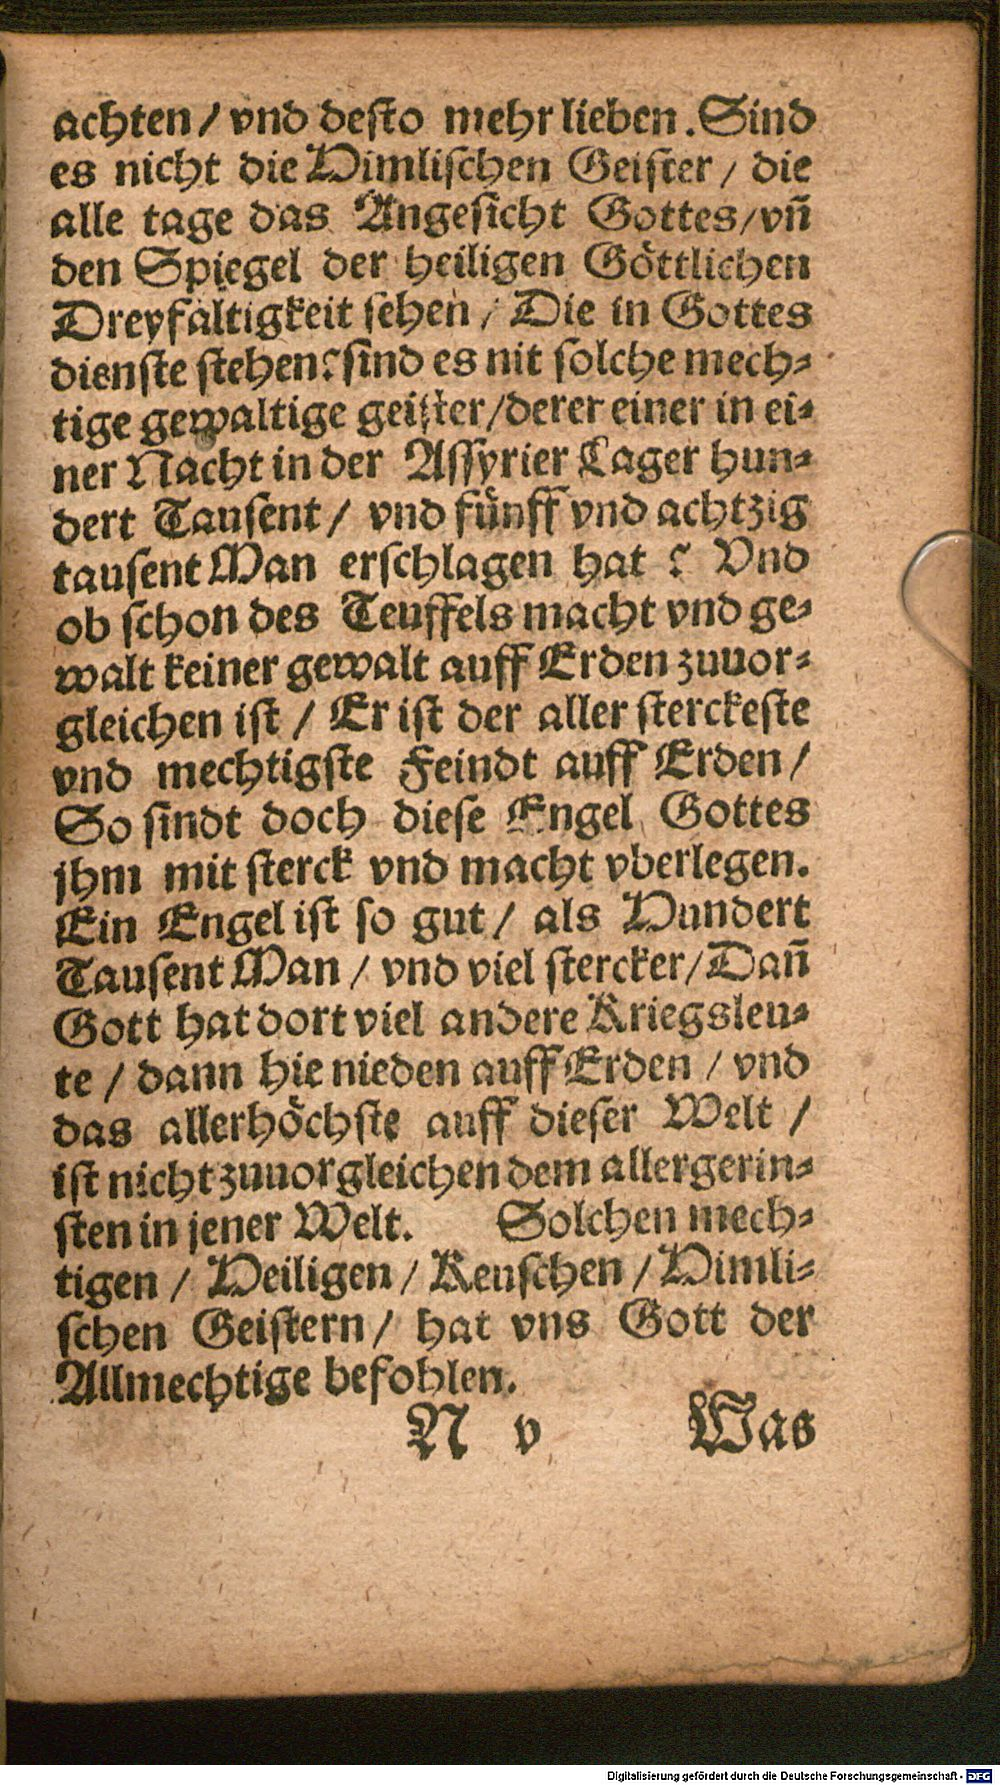 achten / vnd desto mehr lieben. Sind
es nicht die Himlischen Geister / die
alle tage das Angesicht Gottes / vn̄
den Spiegel der heiligen Göttlichen
Dreyfaltigkeit sehen / Die in Gottes
dienste stehen? sind es nit solche mech-
tige gewaltige geister / derer einer in ei-
ner Nacht in der Assyrier Lager hun-
dert Tausent / vnd fünff vnd achtzig
tausent Man erschlagen hat? Vnd
ob schon des Teuffels macht vnd ge-
walt keiner gewalt auff Erden zuuor-
gleichen ist / Er ist der aller sterckeste
vnd mechtigste Feindt auff Erden /
So sindt doch diese Engel Gottes
jhm mit sterck vnd macht vberlegen.
Ein Engel ist so gut / als Hundert
Tausent Man / vnd viel stercker / Dan̄
Gott hat dort viel andere Kriegsleu-
te / dann hie nieden auff Erden / vnd
das allerhöchste auff dieser Welt /
ist nicht zuuorgleichen dem allergerin-
sten in jener Welt. Solchen mech-
tigen / Heiligen / Keuschen / Himli-
schen Geistern / hat vns Gott der
Allmechtige befohlen.
N v Was
Digitalisierung gefördert durch die Deutsche Forschungsgemeinschaft - DFG